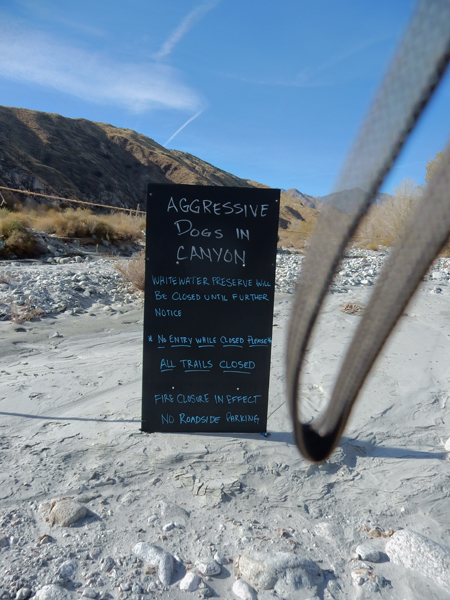 AGGRESSIVE
DOGS IN
CANYON
WHITEWATER PRESERVE WILL
BE CLOSED UNTIL FURTHER
NOTICE
* NO ENTRY WHILE CLOSED PLEASE *
ALL TRAILS CLOSED
FIRE CLOSURE IN EFFECT
NO ROADSIDE PARKING